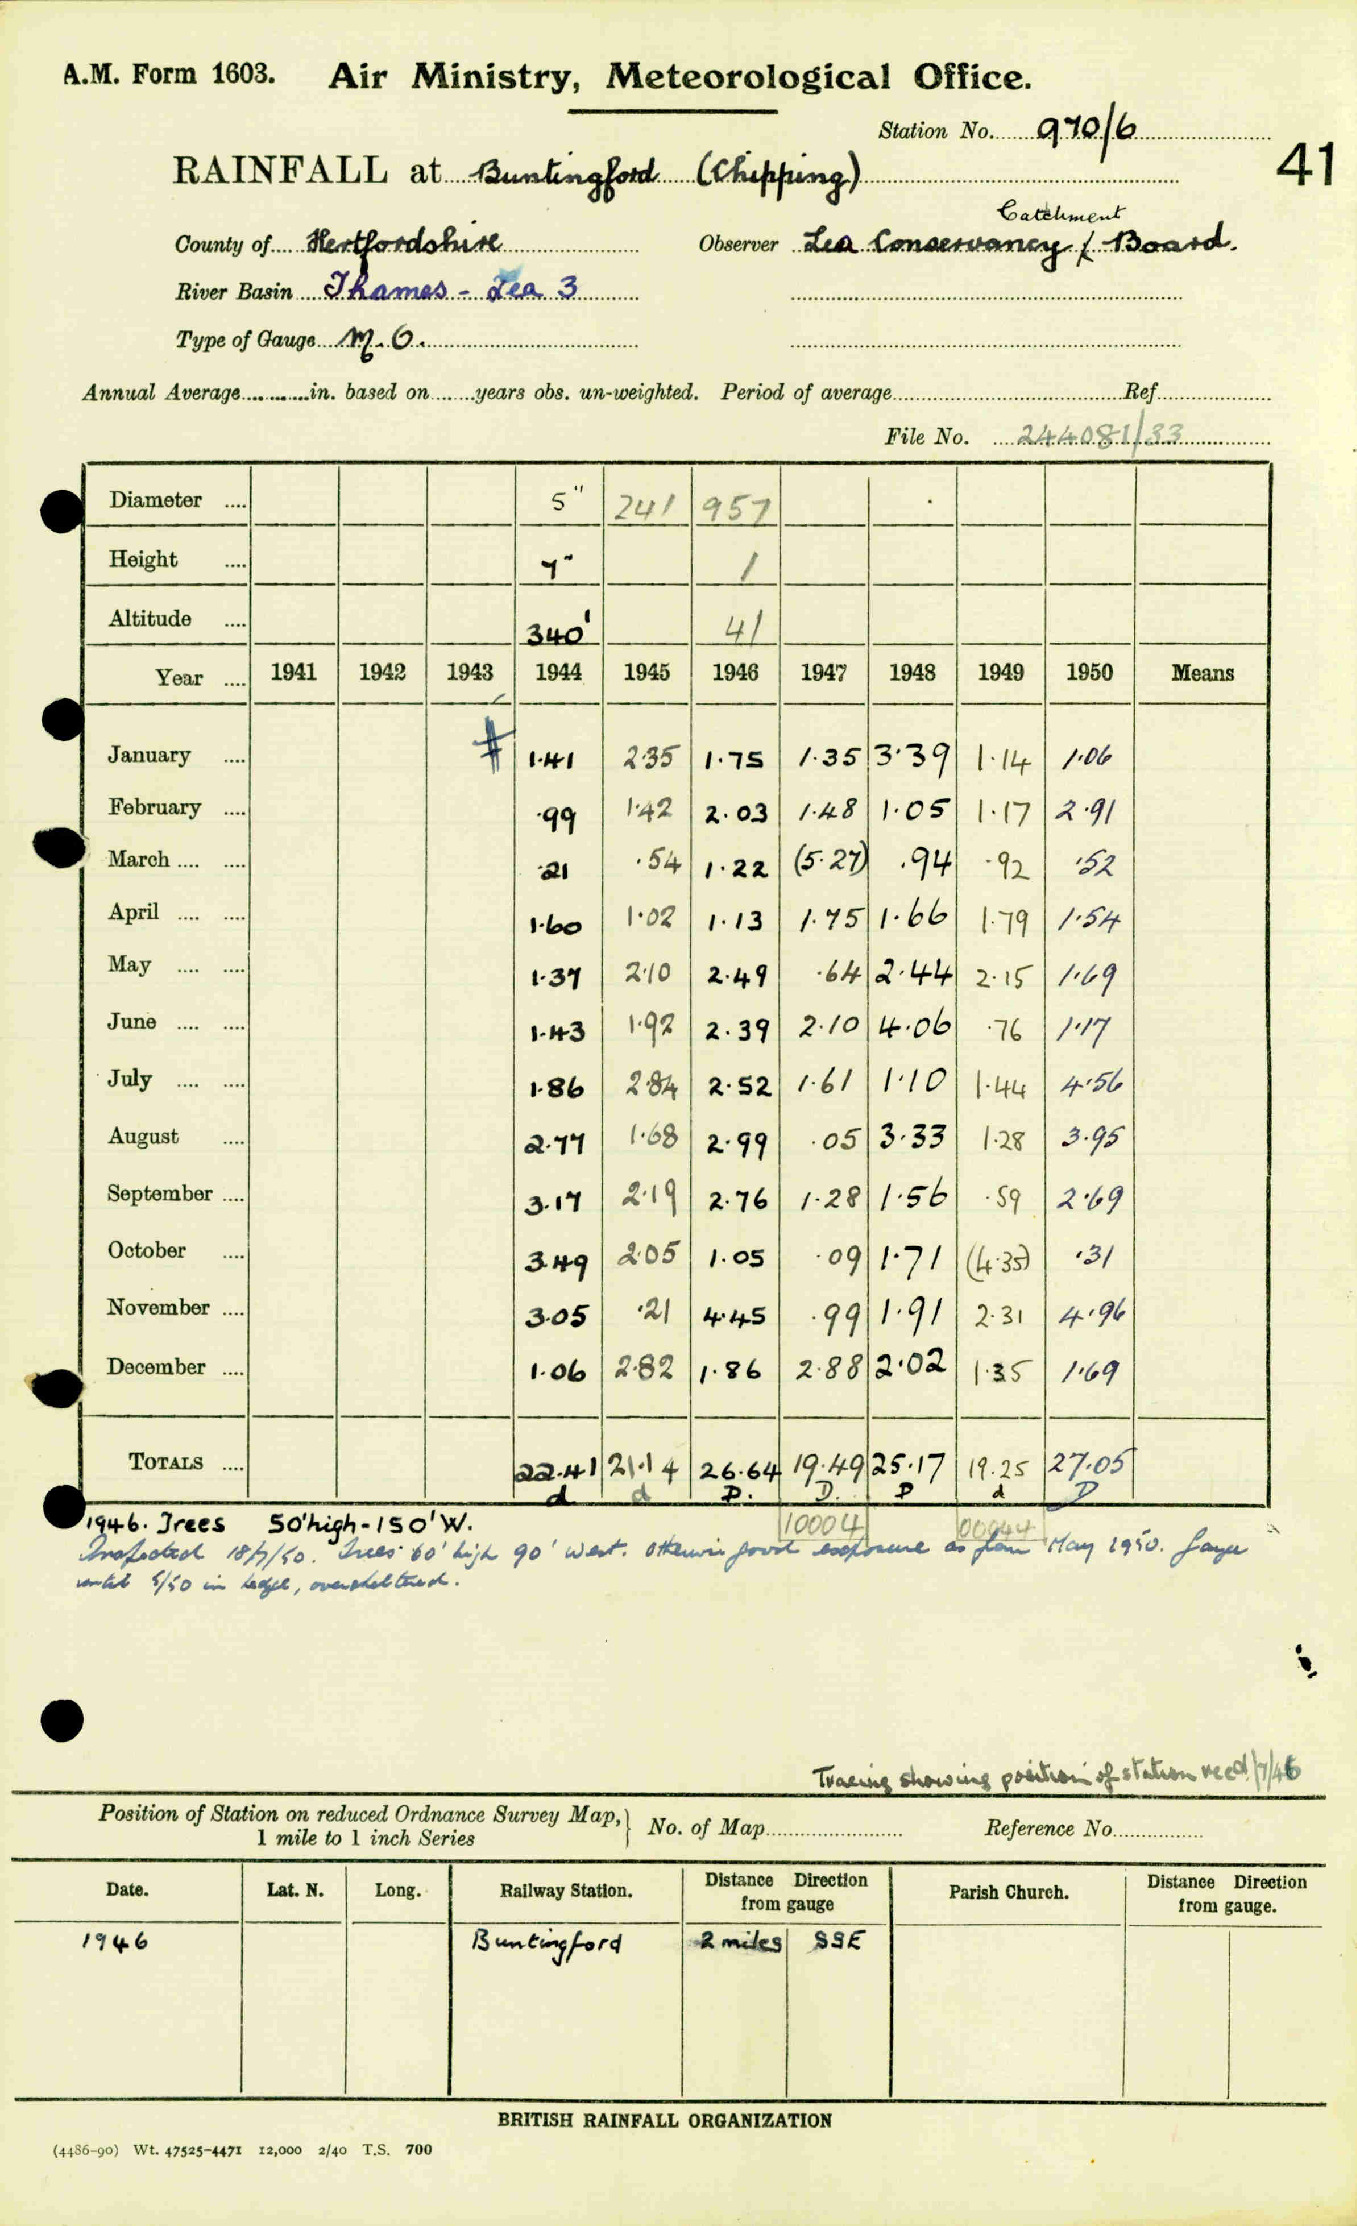 A.M. Form 1603. Air Ministry, Meteorological Office.
Station No. 970/6
41
RAINFALL at Buntingford (Chipping)
Catchment
County of Hertfordshire Observer Lea Conservancy / Board.
River Basin Thames - Lea 3
Type of Gauge M.O.
Annual Average in. based on years obs. un-weighted. Period of average Ref
File No. 244081/33
Diameter .... 5" 241 957
Height .... 7" 1
Altitude .... 340' 41
Year .... 1941 1942 1943 1944 1945 1946 1947 1948 1949 1950 Means
January .... 1.41 2.35 1.75 1.35 3.39 1.14 1.06
February .... .99 1.42 2.03 1.48 1.05 1.17 2.91
March .... .... .21 .54 1.22 (5.27) .94 .92 .52
April .... .... 1.60 1.02 1.13 1.75 1.66 1.79 1.54
May .... .... 1.37 2.10 2.49 .64 2.44 2.15 1.69
June .... .... 1.43 1.92 2.39 2.10 4.06 .76 1.17
July .... .... 1.86 2.84 2.52 1.61 1.10 1.44 4.56
August .... 2.77 1.68 2.99 .05 3.33 1.28 3.95
September .... 3.17 2.19 2.76 1.28 1.56 .59 2.69
October .... 3.49 2.05 1.05 .09 1.71 (4.35) .31
November .... 3.05 .21 4.45 .99 1.91 2.31 4.96
December .... 1.06 2.82 1.86 2.88 2.02 1.35 1.69
TOTALS .... 22.41 21.14 26.64 19.49 25.17 19.25 27.05
d d D. D. D d D
1946. Trees 50' high - 150' W. 10004 00044
Inspected 18/7/50. Trees 60' high 90' west. Otherwise good exposure as from May 1950. Gauge
until 5/50 in hedge, oversheltered.
Tracing showing position of station recd /7/46
Position of Station on reduced Ordnance Survey Map, } No. of Map Reference No.
1 mile to 1 inch Series
Date. Lat. N. Long. Railway Station. Distance Direction from gauge Parish Church. Distance Direction from gauge.
1946 Buntingford 2 miles SSE
BRITISH RAINFALL ORGANIZATION
(4486-90) Wt. 47525-4471 12,000 2/40 T.S. 700